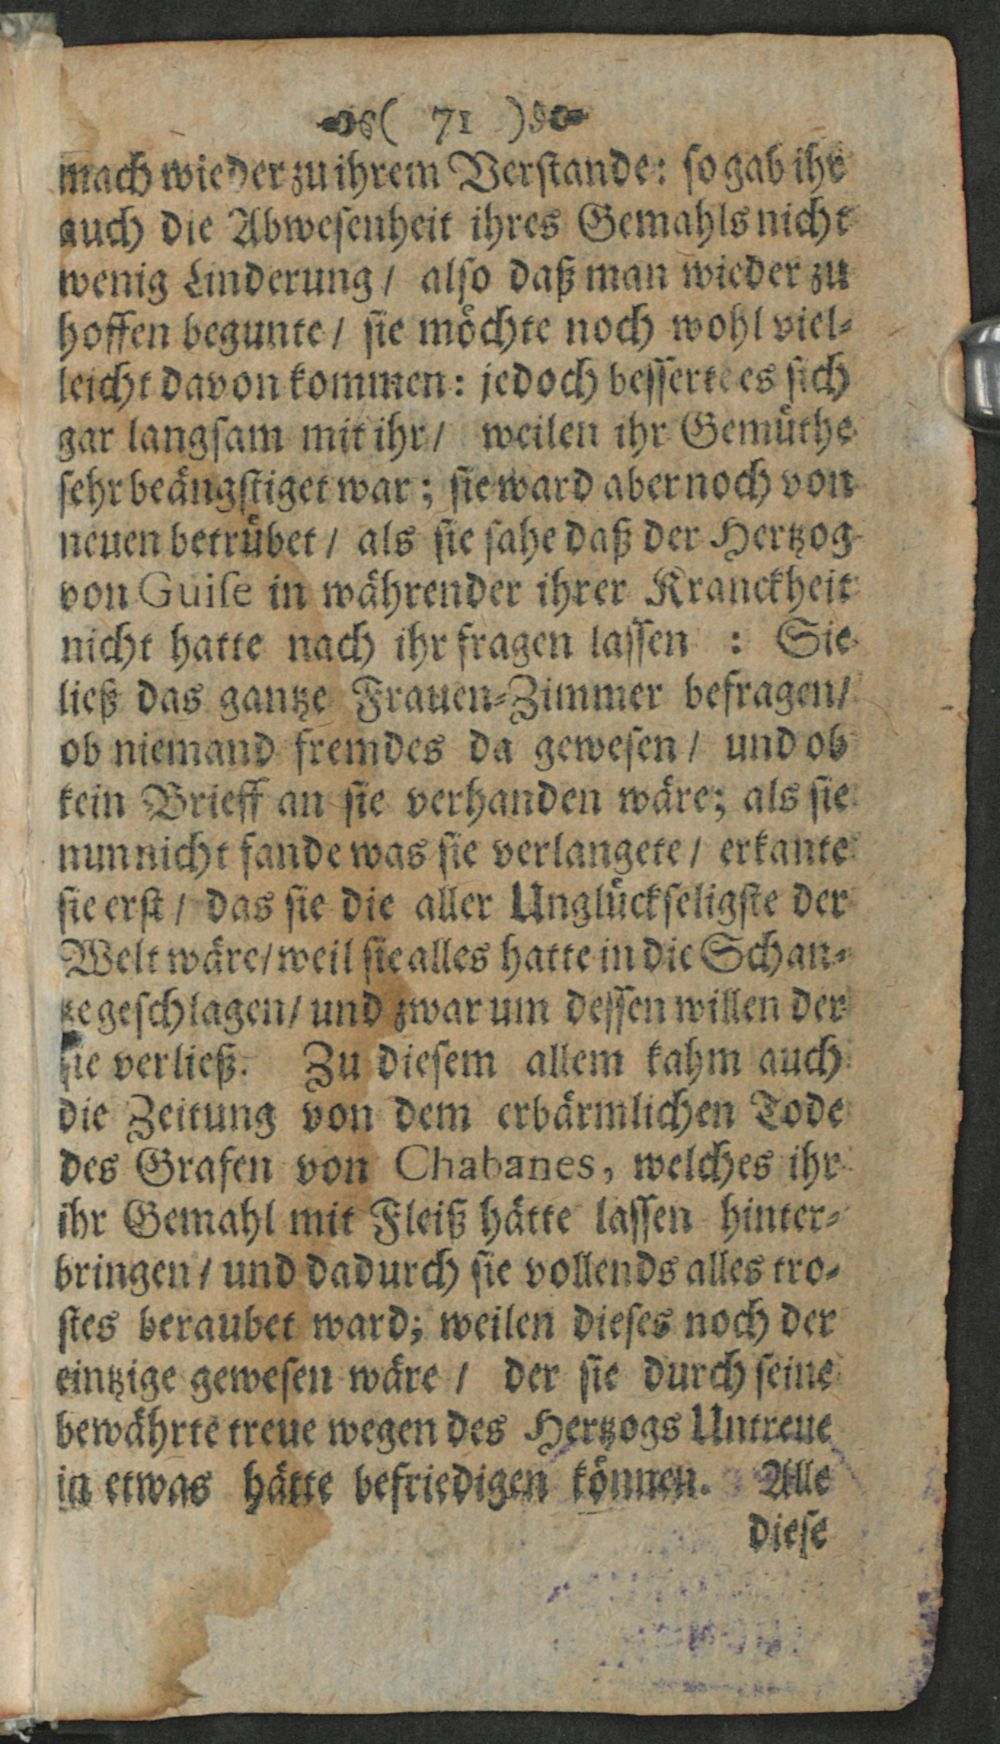 ( 71 )
mach wieder zu ihrem Verstande: so gab ihr
auch die Abwesenheit ihres Gemahls nicht
wenig Linderung / also daß man wieder zu
hoffen begunte / sie möchte noch wohl viel-
leicht davon kommen: jedoch besserte es sich
gar langsam mit ihr / weilen ihr Gemüthe
sehr beängstiget war; sie ward aber noch von
neuen betrübet / als sie sahe daß der Hertzog
von Guise in währender ihrer Kranckheit
nicht hatte nach ihr fragen lassen : Sie
ließ das gantze Frauen-Zimmer befragen /
ob niemand fremdes da gewesen / und ob
kein Brieff an sie verhanden wäre; als sie
nun nicht fande was sie verlangete / erkante
sie erst / das sie die aller Unglückseligste der
Welt wäre / weil sie alles hatte in die Schan-
tze geschlagen / und zwar um dessen willen der
sie verließ. Zu diesem allem kahm auch
die Zeitung von dem erbärmlichen Tode
des Grafen von Chabanes, welches ihr
ihr Gemahl mit Fleiß hätte lassen hinter-
bringen / und dadurch sie vollends alles tro-
stes beraubet ward; weilen dieses noch der
eintzige gewesen wäre / der sie durch seine
bewährte treue wegen des Hertzogs Untreue
in etwas hätte befriedigen können. Alle
diese